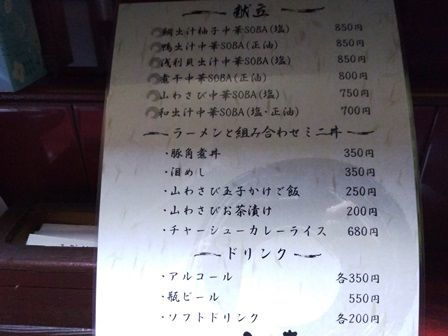 献立
鯛出汁柚子中華SOBA(塩) 850円
鴨出汁中華SOBA(正油) 850円
浅利貝出汁中華SOBA(塩) 850円
煮干中華SOBA(正油) 800円
山わさび中華SOBA(塩) 750円
和出汁中華SOBA(塩・正油) 700円
ラーメンと組み合わせミニ丼
・豚角煮丼 350円
・泪めし 350円
・山わさび玉子かけご飯 250円
・山わさびお茶漬け 200円
・チャーシューカレーライス 680円
ドリンク
・アルコール 各350円
・瓶ビール 550円
・ソフトドリンク 各200円